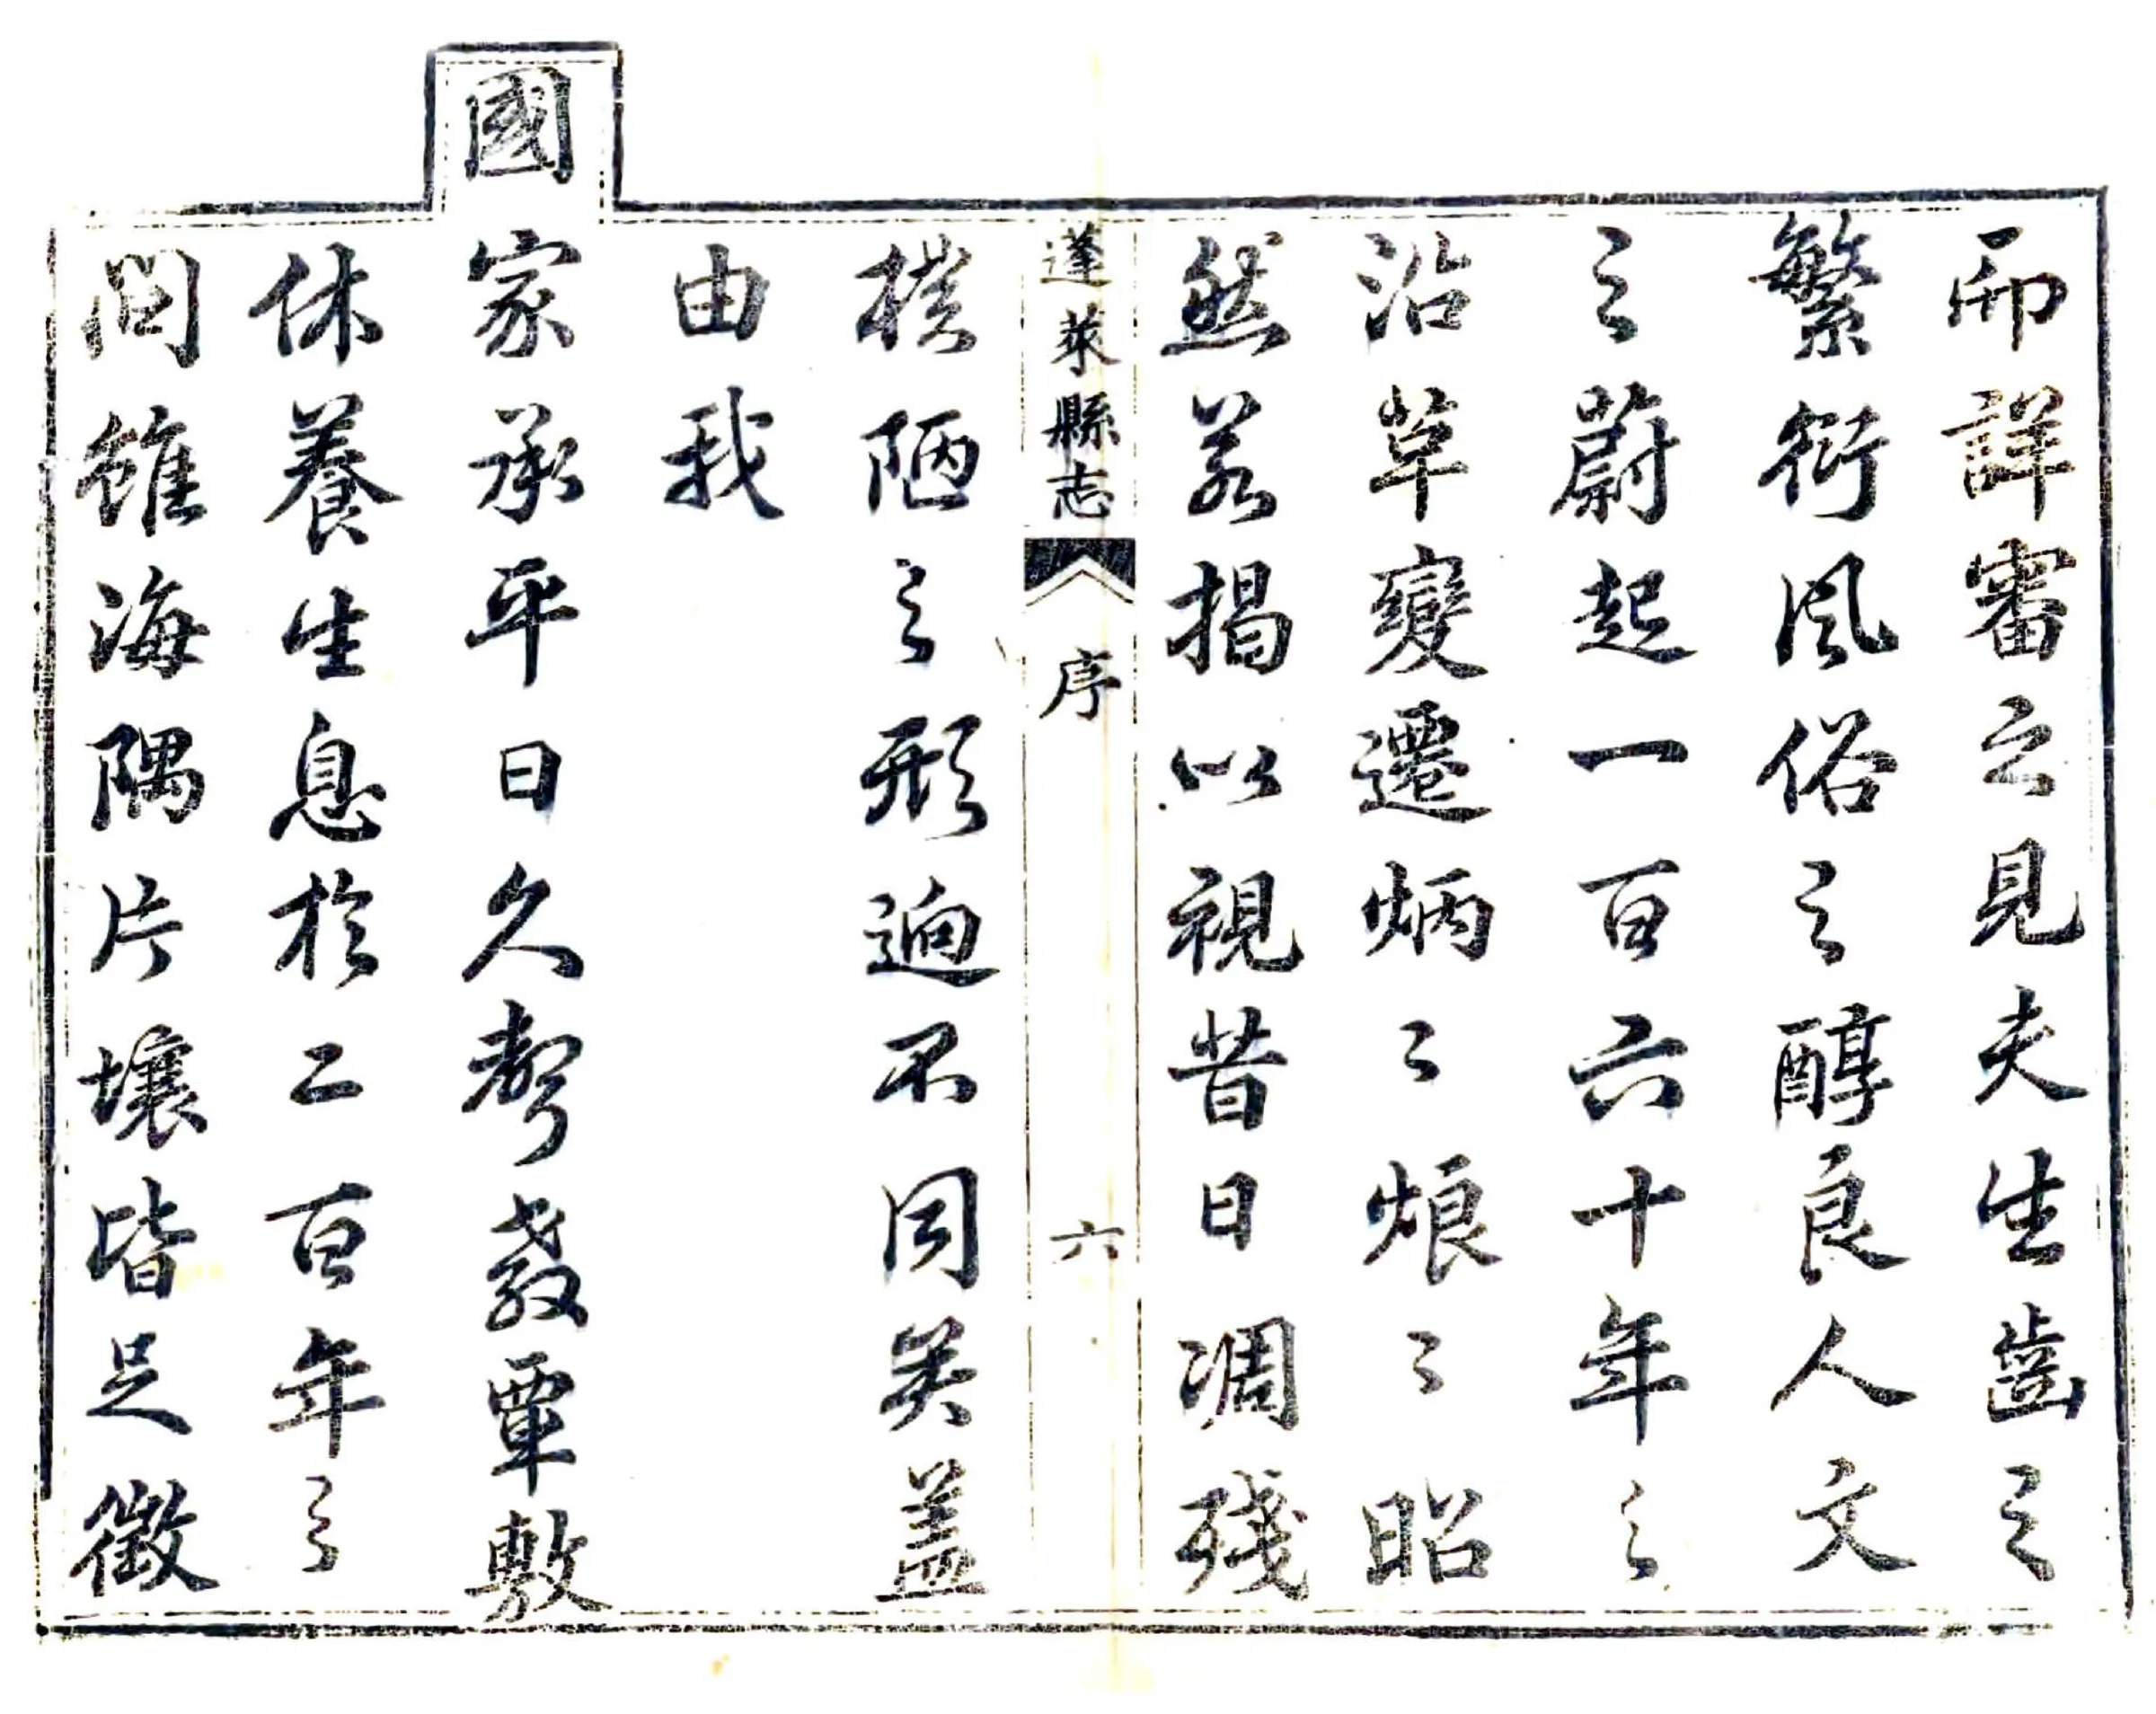 詳審之見夫生齒之
繁衍風俗之醇良人文
之蔚起一百六十年之
沿革變遷炳〻烺〻昭
然若揭以視昔日凋殘
蓬萊縣志 序 六
樸陋之形迥不同矣蓋
由我
國家承平日久聲教覃敷
休養生息於二百年之
間雖海隅片壤皆足徵